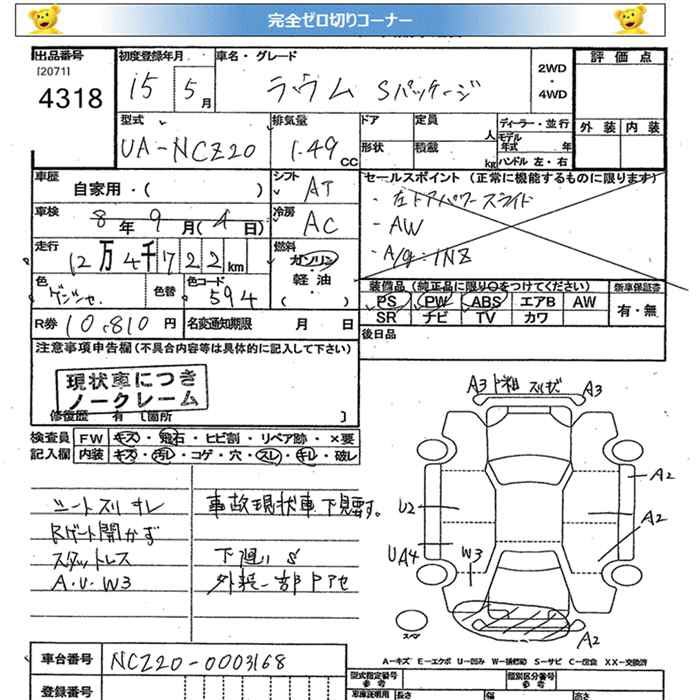 完全ゼロ切りコーナー
出品番号
[2071]
4318
初度登録年月
15 5月
車名・グレード
ラウム Sパッケージ
2WD
・
4WD
評価点
外装 内装
型式
UA-NCZ20
排気量
1.49 CC
ドア 定員 人
形状 積載 kg
ディーラー・並行
モデル年式 年
ハンドル 左・右
車歴
自家用・( )
シフト
AT
セールスポイント (正常に機能するものに限ります)
・左ドアパワースライド
・AW
・A/g:1NZ
車検
8年9月(4日)
冷房
AC
走行
12万4千722km
燃料
ガソリン・
軽油
・
色
色替
色コード
594
装備品 (純正品に限り○をつけてください)
PS PW ABS エアB AW
SR ナビ TV カワ
新車保証書
有・無
R券 10,810円
名変通知期限 月 日
後日品
注意事項申告欄 (不具合内容等は具体的に記入して下さい)
現状車につき
ノークレーム
修復歴 有 [箇所 ]
検査員 FW キズ・飛石・ヒビ割・リペア跡・×要
記入欄 内装 キズ・汚レ・コゲ・穴・スレ・キレ・破レ
シートスリ キレ
Rゲート開かず
スタットレス
A.U.W3
事故現状車下見要す。
下廻りS
外装一部
A3
A3
A2
U2
A2
UA4
W3
A2
スペア
A-キズ E-エクボ U-凹み W-補修跡 S-サビ C-腐食 XX-交換済
車台番号 NCZ20-0003168
登録番号
型式指定番号
類別区分番号
車庫証明用 長さ 幅 高さ
参考